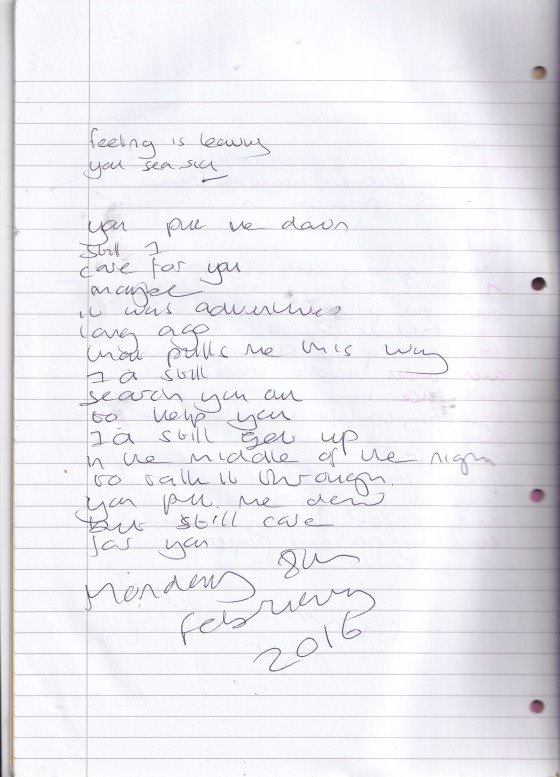 feeling is leaving
you sea sick
you pull me down
still I
care for you
maybe
it was adventures
long ago
that pulls me this way
I'd still
search you out
to help you
I'd still get up
in the middle of the night
to talk it through
you pull me down
but still care
for you
Monday 8th
February
2016